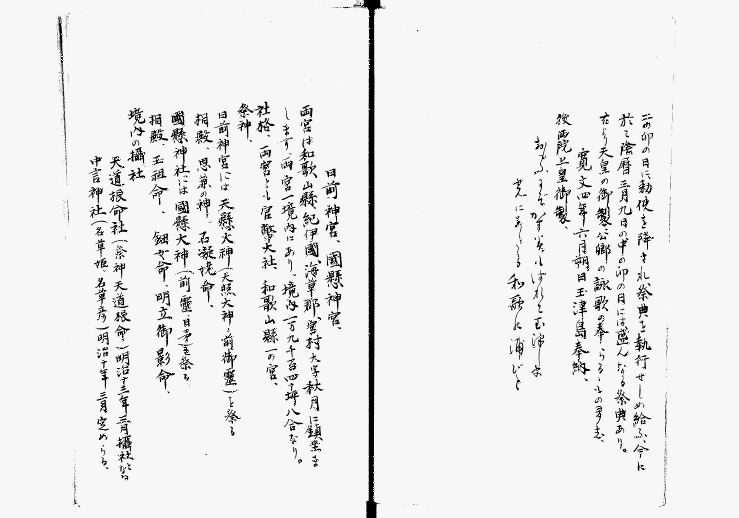 二の卯の日に勅使を降され祭典を執行せしめ給ふ、今に
於て陰暦三月九日の中の卯の日には盛んなる祭典あり。
古より天皇の御製公卿の詠歌の奉らるゝもの多し、
寛文四年六月朔日玉津島奉納、
後西院上皇御製、
和歌の浦びと
日前神宮、國縣神宮、
両宮は和歌山縣紀伊國海草郡宮村大字秋月に鎮坐ま
します、両宮一境内にあり、境内一万九千百四十坪八合なり。
社格、両宮とも官幣大社、和歌山縣一の宮、
祭神、
日前神宮には天縣大神(天照大神の前御靈)を祭る
相殿、思兼の神、石凝姥命、
國縣神社には國縣大神(前靈、日矛を祭る
相殿、玉祖命、鈿女命、明立御影命、
境内の攝社
天道根命社(祭神天道根命)明治十三年三月攝社となる
中言神社(名草姫、名草彦)明治十年三月定めらる、